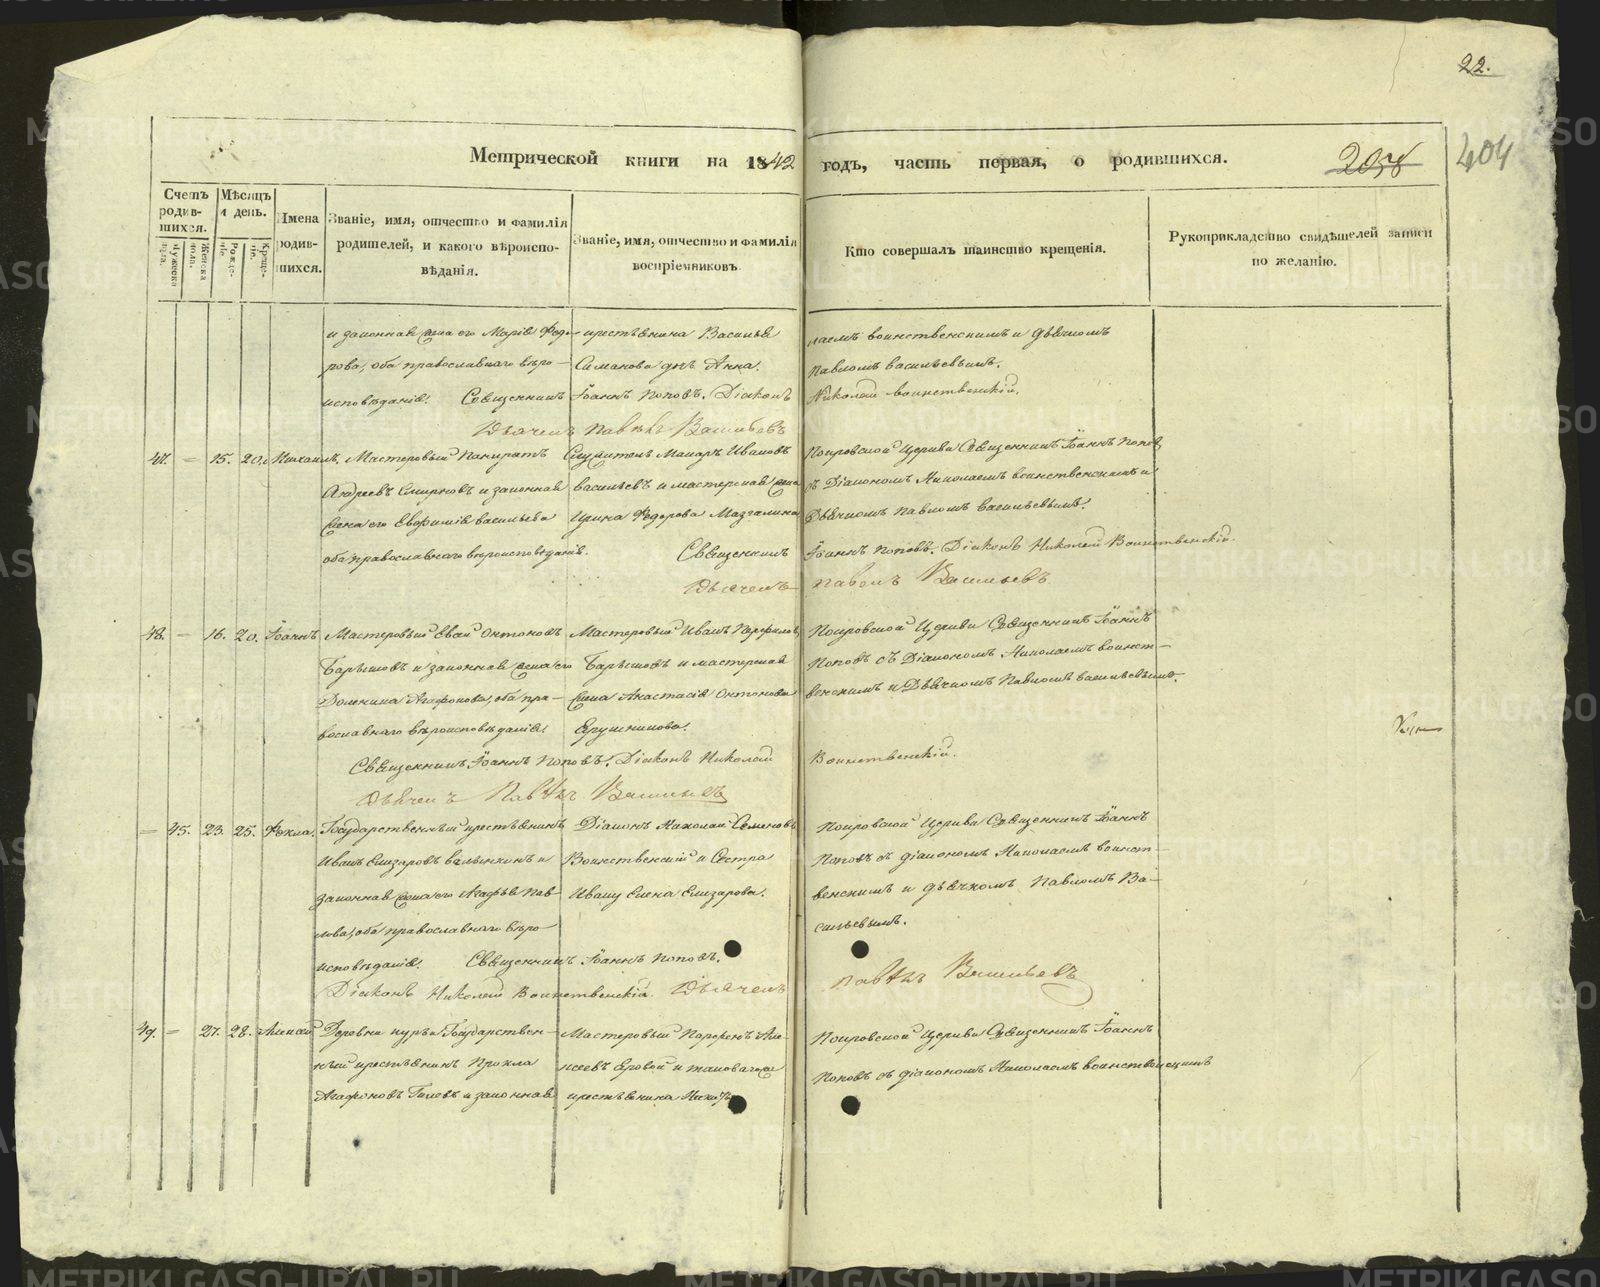 22.
Метрической книги на 1842 годъ, часть первая, о родившихся.
2058
404
Счетъ родившихся.
Мужеска пола.
Женска пола.
Мѣсяцъ и день.
Рожденіе.
Крещеніе.
Имена родившихся.
Званіе, имя, отчество и фамилія родителей, и какого вѣроисповѣданія.
Званіе, имя, отчество и фамилія воспріемниковъ.
Кто совершалъ таинство крещенія.
Рукоприкладство свидѣтелей записи по желанію.
и законная жена его Марія Федо- крестьянина Василья лаемъ воинственскимъ и Дьячкомъ
рова, оба православнаго вѣро- дчь Анна. Павломъ Васильевымъ.
исповѣданія. Священникъ Іоаннъ Поповъ. Діаконъ Николай Воинственскій.
Дьячекъ Павелъ Васильевъ
47. — 15. 20. Михаилъ. Мастеровый Панкратъ Служитель Макаръ Ивановъ Покровской Церкви Священникъ Іоаннъ Поповъ
Андреевъ Смирновъ и законная Васильевъ и мастерская жена съ Діакономъ Николаемъ воинственскимъ и
жена его Евфимія Васильева Ирина Федорова Дьячкомъ Павломъ Васильевымъ.
оба православнаго вѣроисповѣданія. Священникъ Іоаннъ Поповъ. Діаконъ Николай Воинственскій.
Дьячекъ Павелъ Васильевъ
48. — 16. 20. Іоаннъ Мастеровый Онтоновъ Мастеровый Иванъ Покровской Церкви Священникъ Іоаннъ
и законная жена его и мастерская Поповъ съ Діакономъ Николаемъ воинст-
Домникия Агафонова, оба пра- жена Анастасія Онтонова венскимъ и Дьячкомъ Павломъ Васильевымъ.
вославнаго вѣроисповѣданія.
Священникъ Іоаннъ Поповъ. Діаконъ Николай Воинственскій.
Дьячекъ Павелъ Васильевъ
— 45. 23. 25. Фекла. Государственный крестьянинъ Діаконъ Николай Семеновъ Покровской Церкви Священникъ Іоаннъ
Иванъ Елизаровъ и Воинственскій и Сестра Поповъ съ діакономъ Николаемъ воинст-
законная жена его Агафья Пав- Ивану Елена Елизарова. венскимъ и дьячкомъ Павломъ Ва-
лова, оба православнаго вѣро- сильевымъ.
исповѣданія. Священникъ Іоаннъ Поповъ.
Діаконъ Николай Воинственскій. Дьячекъ Павелъ Васильевъ
49. — 27. 28. Алексѣй Деревни Государствен- Мастеровый Парфенъ Але- Покровской Церкви Священникъ Іоаннъ
ный крестьянинъ Прокла ксеевъ и таковагожъ Поповъ съ діакономъ Николаемъ
Агафоновъ и законная крестьянина